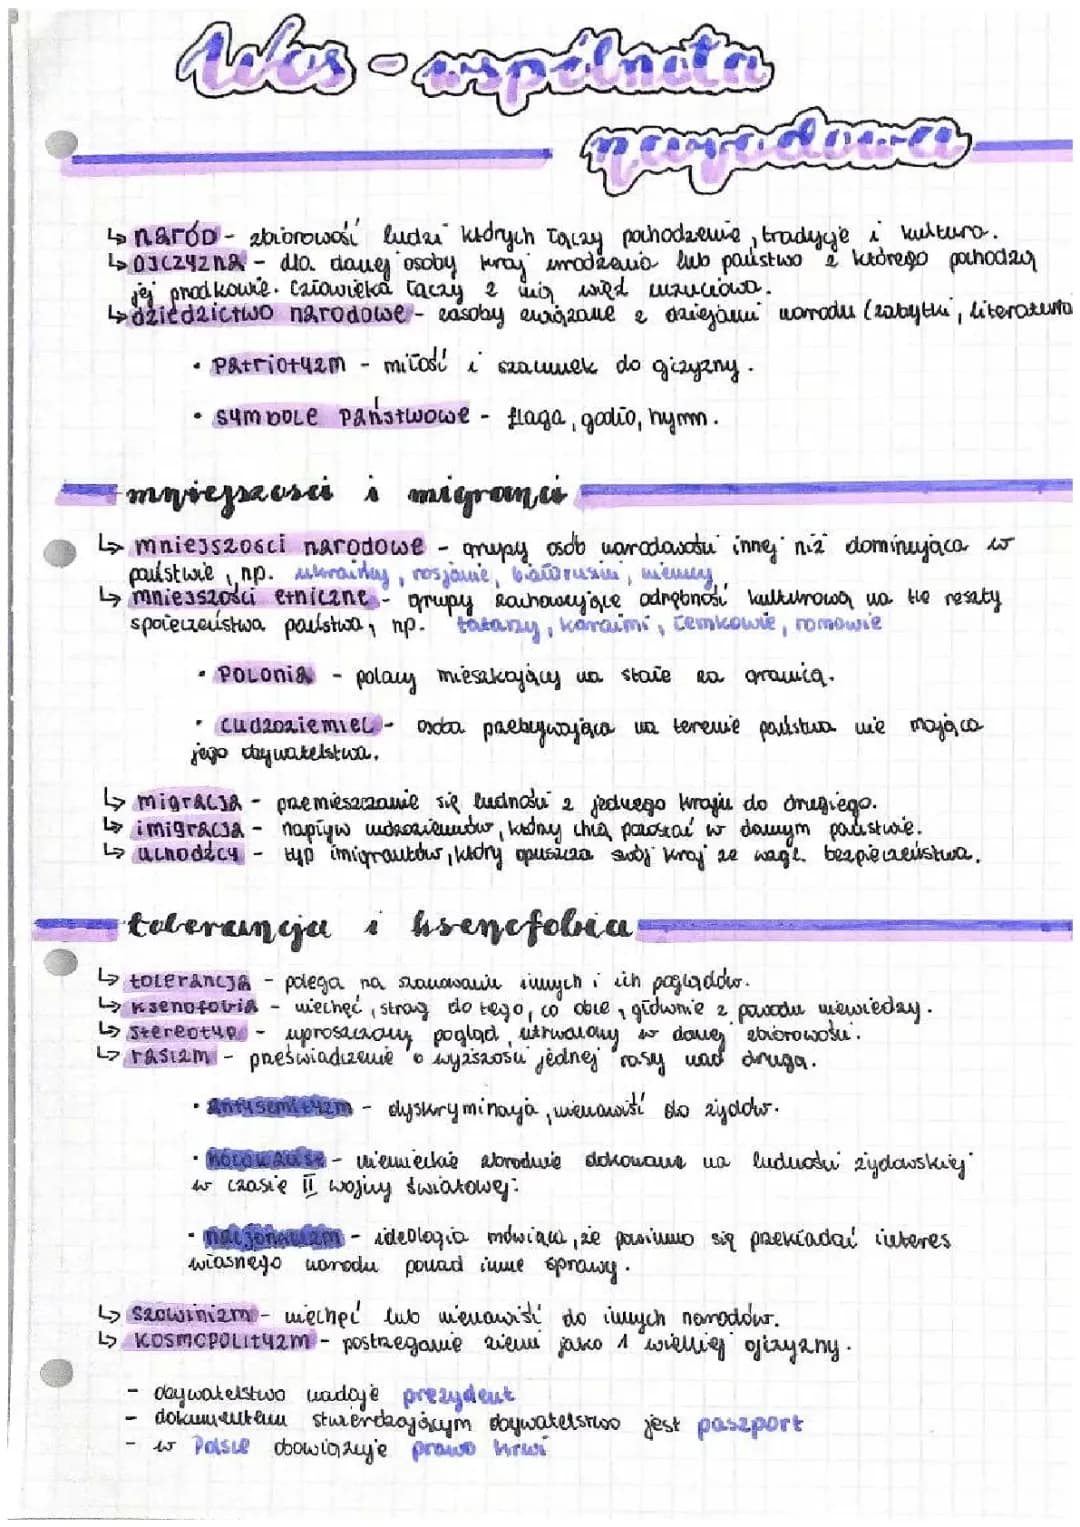 Wos - wspólnota
narodowa
↳ naród - zbiorowość ludzi których łączy pochodzenie, tradycje i kultura.
↳ ojczyzna - dla danej osoby kraj urodzenia lub państwo z którego pochodzą
jej przodkowie. Człowieka łączy z nią więź uczuciowa.
↳ dziedzictwo narodowe - zasoby związane z dziejami narodu (zabytki, literatura
• patriotyzm - miłość i szacunek do ojczyzny.
• symbole państwowe - flaga, godło, hymn.
mniejszości i migranci
↳ mniejszości narodowe - grupy osób narodowości innej niż dominująca w
państwie, np. ukraińcy, rosjanie, białorusini, niemcy
↳ mniejszości etniczne - grupy zachowujące odrębność kulturową na tle reszty
społeczeństwa państwa, np. tatarzy, karaimi, łemkowie, romowie
• Polonia - polacy mieszkający na stałe za granicą.
• cudzoziemiec - osoba przebywająca na terenie państwa nie mająca
jego obywatelstwa.
↳ migracja - przemieszczanie się ludności z jednego kraju do drugiego.
↳ imigracja - napływ cudzoziemców, którzy chcą pozostać w danym państwie.
↳ uchodźcy - typ imigrantów, który opuszcza swój kraj ze wzgl. bezpieczeństwa.
tolerancja i ksenofobia
↳ tolerancja - polega na szanowaniu innych i ich poglądów.
↳ ksenofobia - niechęć, strach do tego, co obce, głównie z powodu niewiedzy.
↳ stereotyp - uproszczony pogląd, utrwalony w danej zbiorowości.
↳ rasizm - przeświadczenie o wyższości jednej rasy nad drugą.
• antysemityzm - dyskryminacja, nienawiść do żydów.
• holokaust - niemieckie zbrodnie dokonane na ludności żydowskiej
w czasie II wojny światowej.
• nacjonalizm - ideologia mówiąca, że powinno się przekładać interes
własnego narodu ponad inne sprawy.
↳ szowinizm - niechęć lub nienawiść do innych narodów.
↳ kosmopolityzm - postrzeganie ziemi jako 1 wielkiej ojczyzny.
- obywatelstwo nadaje prezydent
- dokumentem stwierdzającym obywatelstwo jest paszport
- w Polsce obowiązuje prawo krwi